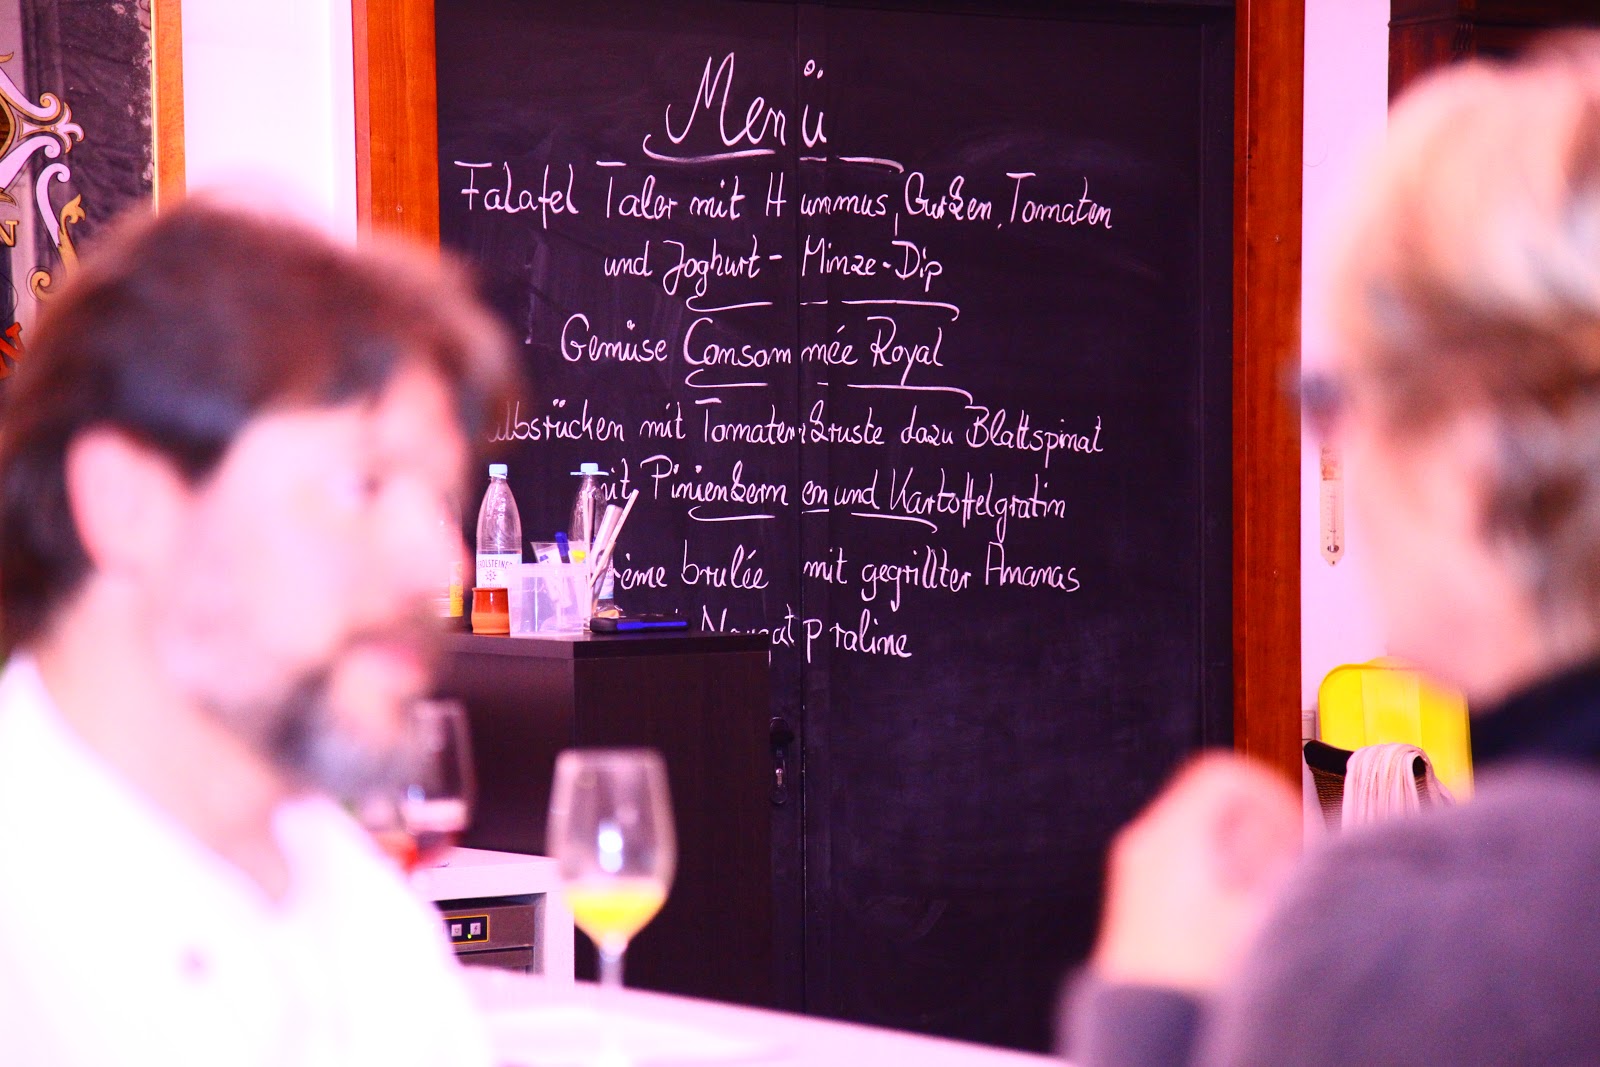 Menü
Falafel Taler mit Hummus, Gurken, Tomaten
und Joghurt-Minze-Dip
Gemüse Consommée Royal
albsrücken mit Tomatenkruste dazu Blattspinat
mit Pinienkernen und Kartoffelgratin
rème brulée mit gegrillter Ananas
Nougatpraline